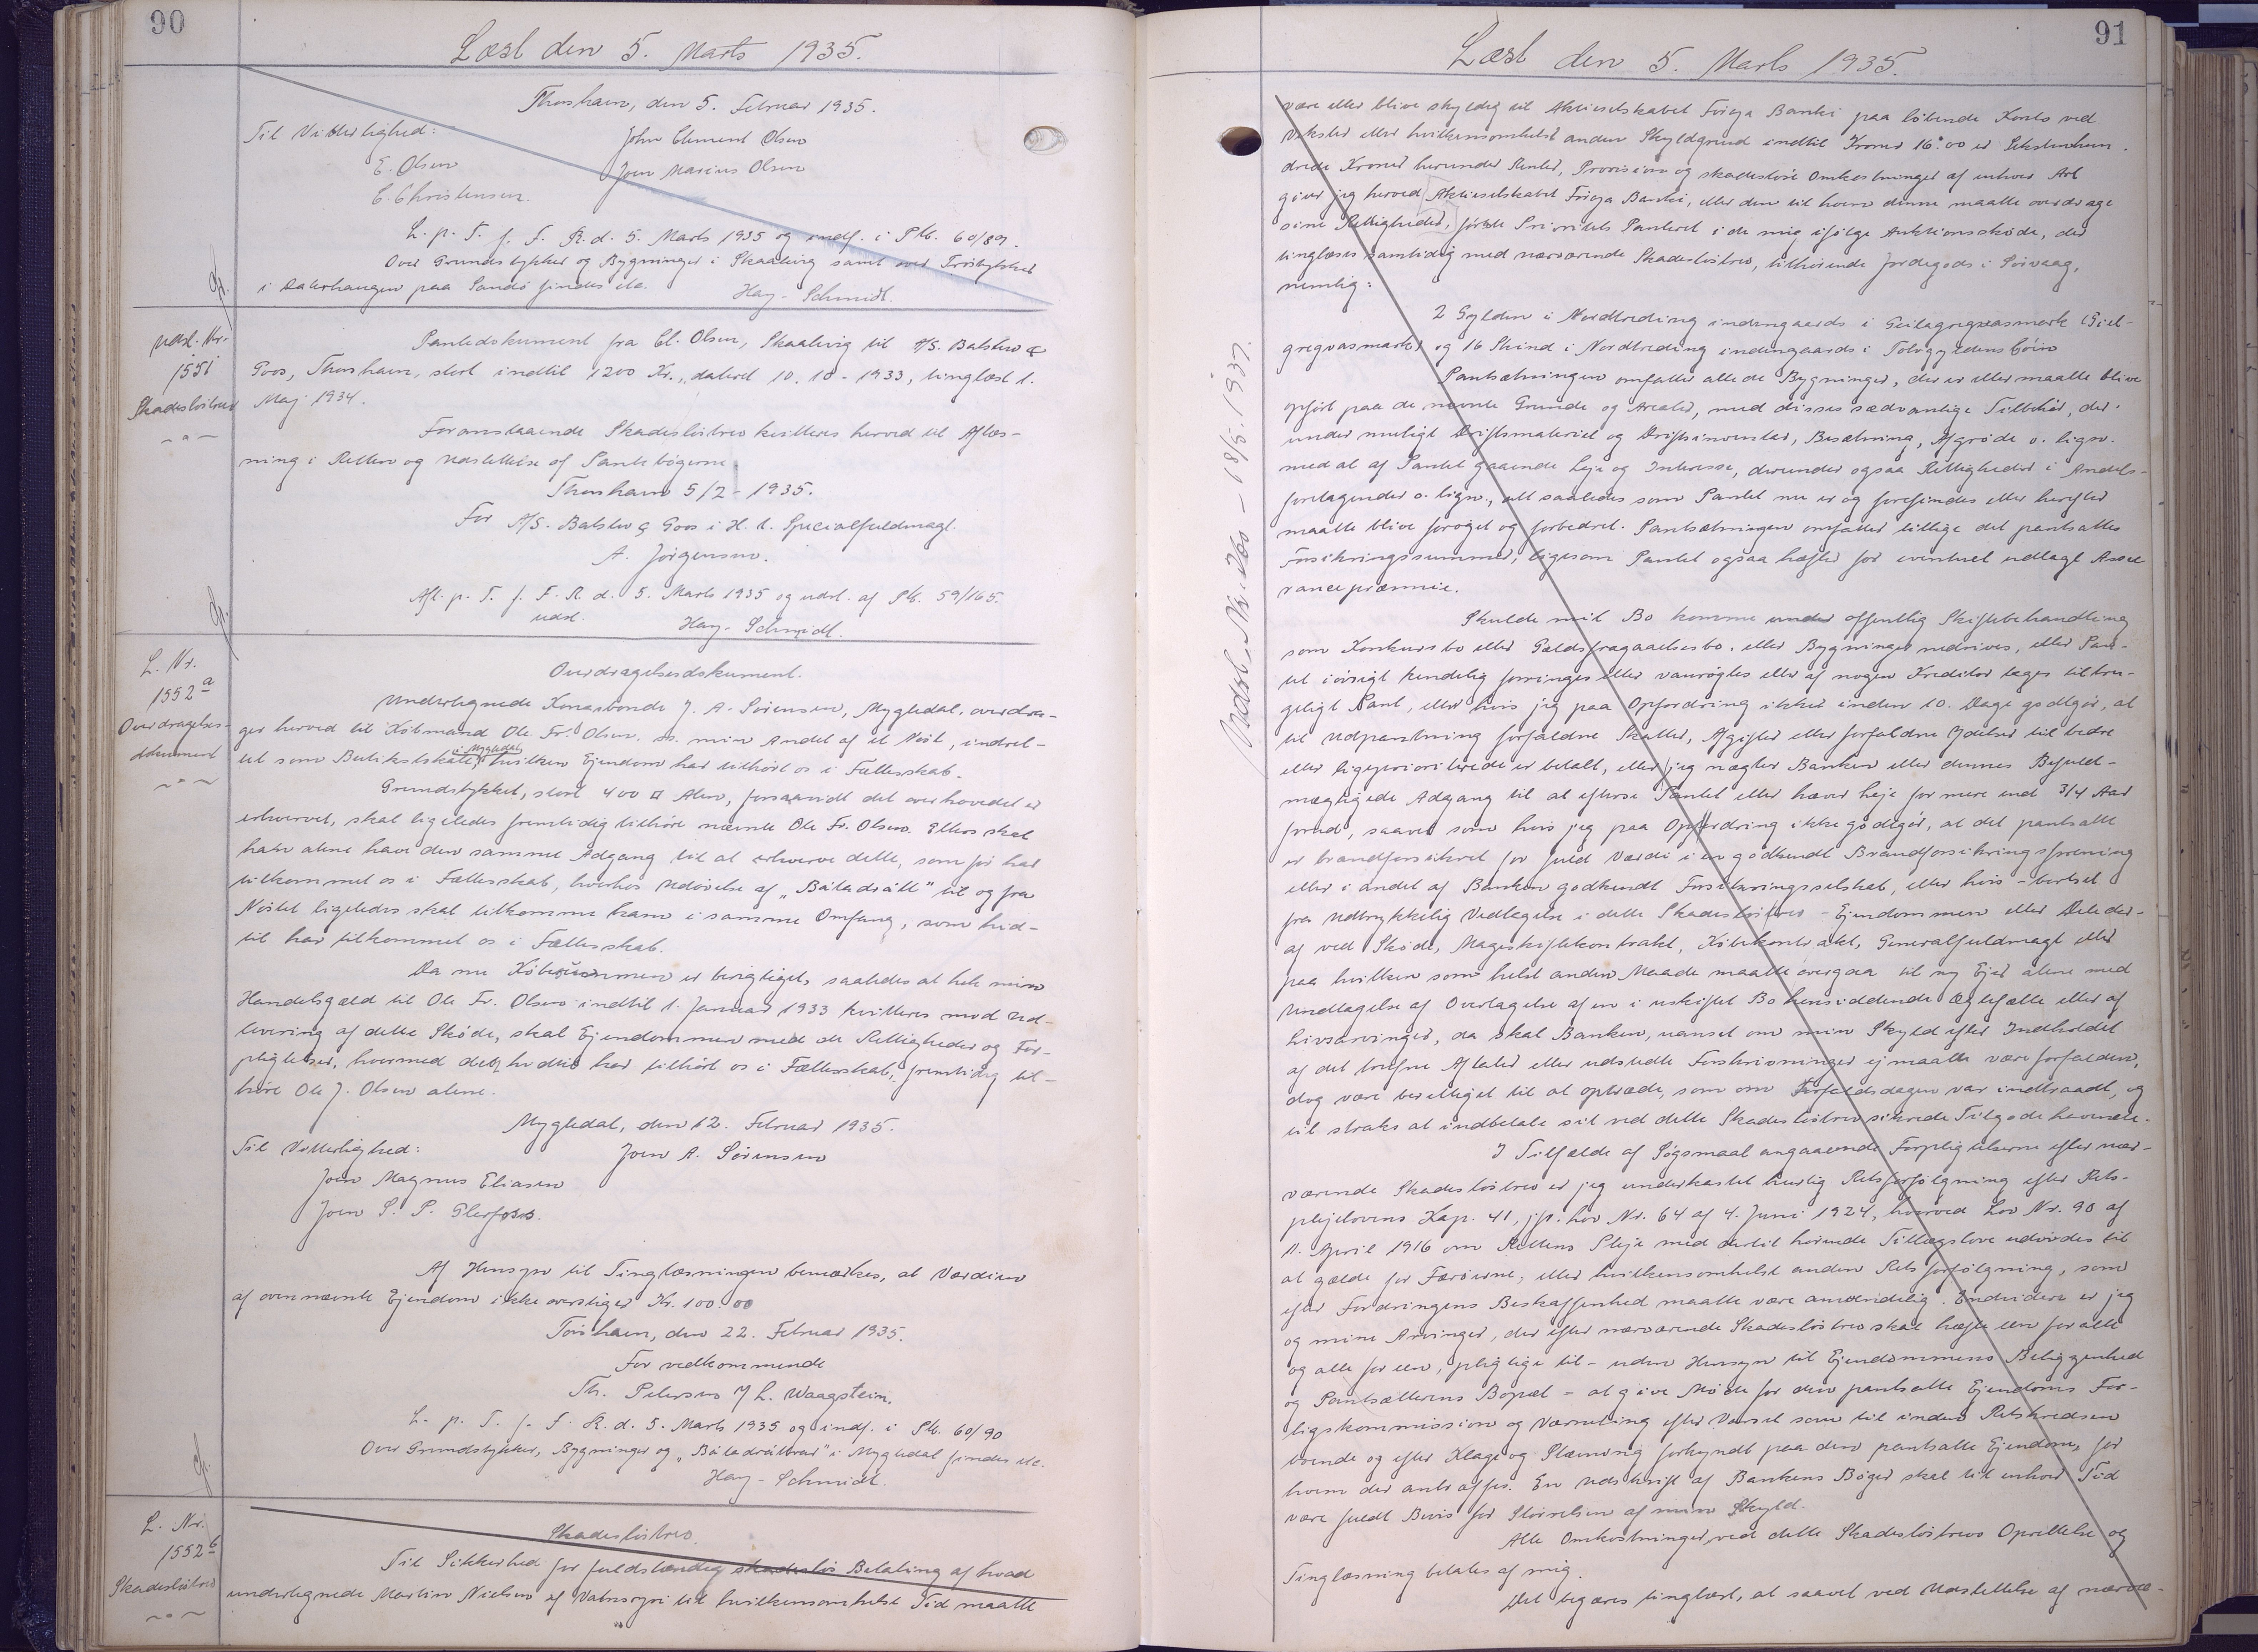 90
Læst den 5. Marts 1935.
Thorshavn, den 5. Februar 1935.
Til Vitterlighed:
John Clement Olsen
E. Olsen
Joen Marius Olsen
C. Christensen.
L. p. T. f. F. R. d. 5. Marts 1935 og indf. i Pb. 60/89.
Over Grundstykker og Bygninger i Skaalevig samt over
i paa Sandø findes
Hay-Schmidt.
Udsl. Nr.
1551
Skadesløsbrev
Pantedokument fra Cl. Olsen, Skaalevig til A/S. Balslev &
Goos, Thorshavn, stort indtil 1200 Kr., dateret 10.10-1933, tinglæst 1.
Maj 1934.
Foranstaaende Skadesløsbrev kvitteres herved til Aflæs-
ning i Retten og Udslettelse af Pantebøgerne.
Thorshavn 5/2-1935.
For A/S. Balslev & Goos i H. t. Specialfuldmagt.
A. Jörgensen.
Afl. p. T. f. F. R. d. 5. Marts 1935 og udsl. af Pb. 59/165.
udsl.
Hay-Schmidt.
L. Nr.
1552 a
Overdragelses-
dokument
Overdragelsesdokument.
Undertegnede Kongsbonde J. A. Sörensen, Mygledal, overdra-
ger herved til Köbmand Ole Fr. Olsen. min Andel af et Nöst, indret-
tet som Butikslokale, i Mygledal, hvilken Ejendom har tilhört os i Fællesskab.
Grundstykket, stort 400 □ Alen, forsaavidt det overhovedet er
erhvervet, skal ligeledes fremtidig tilhöre nævnte Ole Fr. Olsen. Ellers skal
han alene have den samme Adgang til at erhverve dette, som för har
tilkommet os i Fællesskab, hvorhos Udövelse af „Bátadrátt" til og fra
Nöstet ligeledes skal tilkomme ham i samme Omfang, som hid-
til har tilkommet os i Fællesskab.
Da nu Köbesummen er berigtiget, saaledes at hele min
Handelsgæld til Ole Fr. Olsen indtil 1. Januar 1933 kvitteres mod Ud-
levering af dette Sköde, skal Ejendommen med de Rettigheder og For-
pligtelser, hvormed det hidtil har tilhört os i Fællesskab, fremtidig til-
höre Ole J. Olsen alene.
Mygledal, den 12. Februar 1935.
Til Vitterlighed:
Joen A. Sörensen
Joen Magnus Eliasen
Joen S. P.
Af Hensyn til Tinglæsningen bemærkes, at Værdien
af ovennævnte Ejendom ikke overstiger Kr. 100.00
Torshavn, den 22. Februar 1935.
For vedkommende
Th. Petersen / L. Waagstein.
L. p. T. f. F. R. d. 5. Marts 1935 og indf. i Pb. 60/90
Over Grundstykker, Bygninger og „Bátadráttrar" i Mygledal findes etc.
Hay-Schmidt.
L. Nr.
1552 b
Skadesløsbrev
Skadesløsbrev.
Til Sikkerhed for fuldstændig skadeslös Betaling af hvad
undertegnede Martin Nielsen af Vatnsoyri til hvilkensomhelst Tid maatte
91
Læst den 5. Marts 1935.
være eller blive skyldig til Aktieselskabet Föroya Banki paa löbende Konto ved
Veksler eller hvilkensomhelst anden Skyldgrund indtil Kroner 1600 er Sekstenhun-
drede Kroner herunder Renter, Provision og skadeslöse Omkostninger af enhver Art
giver jeg herved Aktieselskabet Föroya Banki, eller den til hvem denne maatte overdrage
sine Rettigheder, förste Prioritets Panteret i de mig ifölge Auktionssköde, der
tinglæses samtidig med nærværende Skadeslösbrev, tilhörende Jordegods i Sörvaag,
nemlig:
2 Gylden i Nordtreding indengaards i Geilagregvasmark (Giel-
gregvasmark) og 16 Skind i Nordtreding indengaards i
Pantsætningen omfatter alle de Bygninger, der er eller maatte blive
opfört paa de nævnte Grunde og Arealer, med disses sædvanlige Tilbehör, der-
under muligt Driftsmateriel og Driftsinventar, Besætning, Afgröde o. lign.
med al af Pantet gaaende Leje og Interesse, derunder ogsaa Rettigheder i Andels-
foretagender o. lign., alt saaledes som Pantet nu er og forefindes eller herefter
maatte blive foröget og forbedret. Pantsætningen omfatter tillige det pantsattes
Forsikringssummer, ligesom Pantet ogsaa hæfter for eventuel udlagt Assu-
rancepræmie.
Skulde mit Bo komme under offentlig Skiftebehandling
som Konkursbo eller Gældsfragaaelsesbo, eller Bygninger nedrives, eller Pan-
tet iövrigt kendelig forringes eller vanrögtes eller af nogen Kreditor tages til bru-
geligt Pant, eller hvis jeg paa Opfordring ikke inden 10. Dage godtgör, at
til Udpantning forfaldne Skatter, Afgifter eller forfaldne Ydelser til bedre
eller ligeprioriterede er betalt, eller jeg nægter Banken eller dennes Befuld-
mægtigede Adgang til at efterse Pantet eller hæver Leje for mere end 3/4 Aar
forud, saavel som hvis jeg paa Opfordring ikke godtgör, at det pantsatte
er brandforsikret for fuld Værdi i en godkendt Brandforsikringsforening
eller i andet af Banken godkendt Forsikringsselskab, eller hvis - bortset
fra udtrykkelig Vedtagelse i dette Skadeslösbrev - Ejendommen eller Dele der-
af ved Sköde, Mageskiftekontrakt, Köbekontrakt, Generalfuldmagt eller
paa hvilken som helst anden Maade maatte overgaa til ny Ejer alene med
Undtagelse af Overtagelse af en i uskiftet Bo hensiddende Ægtefælle eller af
Livsarvinger, da skal Banken, uanset om min Skyld efter Indholdet
af det trufne Aftaler eller udstedte Forskrivninger ej maatte være forfalden,
dog være berettiget til at optræde, som om Forfaldsdagen var indtraadt, og
til straks at indbetale sit ved dette Skadeslösbrev sikrede Tilgodehavende.
I Tilfælde af Sögsmaal angaaende Forpligtelserne efter nær-
værende Skadeslösbrev er jeg underkastet hurtig Retsforfölgning efter Rets-
plejelovens Kap. 41, jfr. Lov Nr. 64 af 4. Juni 1924, hvorved Lov Nr. 90 af
11. April 1916 om Rettens Pleje med dertil hörende Tillægslove udvides til
at gælde for Færöerne, eller hvilkensomhelst anden Retsforfölgning, som
efter Fordringens Beskaffenhed maatte være anvendelig. Endvidere er jeg
og mine Arvinger, der efter nærværende Skadeslösbrev skal hæfte een for alle
og alle for een, pligtige til - uden Hensyn til Ejendommens Beliggenhed
og Pantsætterens Bopæl - at give Möde for den pantsatte Ejendoms For-
ligskommission og Værneting efter Varsel som til inden Retskredsen
boende og efter Klage og Stævning forkyndt paa den pantsatte Ejendom, for
hvem der antræffes. En Udskrift af Bankens Böger skal til enhver Tid
være fuldt Bevis for Störrelsen af min Skyld.
Alle Omkostninger ved dette Skadeslösbrevs Oprettelse og
Tinglæsning betales af mig.
Det begæres tinglæst, at saavel ved Udslettelse af nærvæ-
Udsl. Nr. - 18/5. 1937.